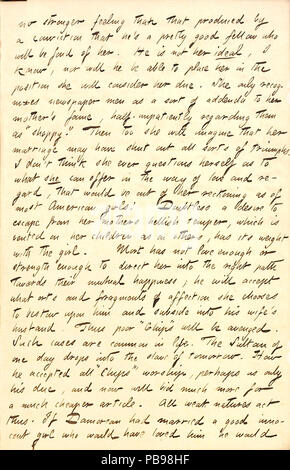 no stronger feeling than that produced by
a conviction that he's a pretty good fellow who
will be fond of her. He is not her ideal, I
know, nor will he be able to place her in the
position she will consider her due. She only recog-
nizes newspaper men as a sort of addenda to her
mother's fame, half-impatiently regarding them
as "shoppy." Then too she will imagine that her
marriage may have shut out all sorts of triumphs.
I don't think she ever questions herself as to
what she can offer in the way of love and re-
gard, that would be out of her reckoning as of
most American girls. Doubtless a desire to
escape from her mother's hellish temper, which is
vented on her children as on others, has its weight
with the girl. Mort has not love enough or
strength enough to direct her into the right path
towards their mutual happiness; he will accept
what orts and fragments of affection she chooses
to bestow upon him and subside into his wife's
husband. Thus poor "Chips" will be avenged.
Such cases are common in life. The Sultan of
one day drops into the slave of tomorrow. How
he accepted all "Chips'" worship, perhaps as only
his due, and now will bid much more for
a much cheaper article. All weak natures act
thus. If Damoreau had married a good inno-
cent girl who would have loved him he would
alamy
PB98HF